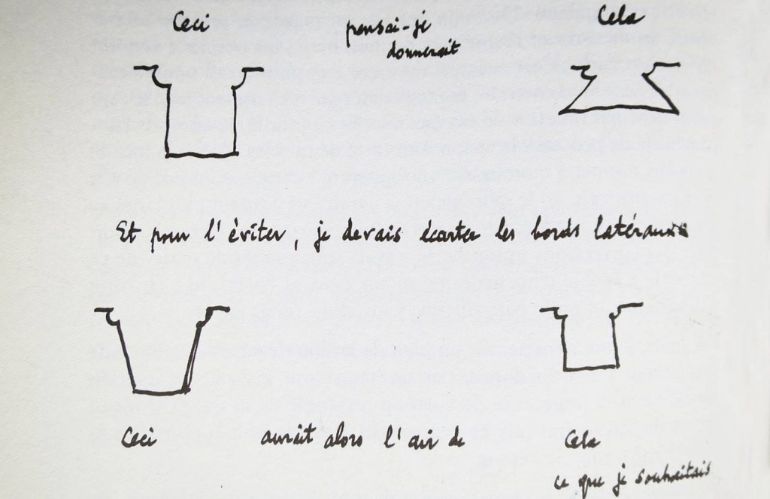 Ceci pensai-je Cela
donnerait
Et pour l'éviter, je devais écarter les bords latéraux
Ceci aurait alors l'air de Cela
ce que je souhaitais